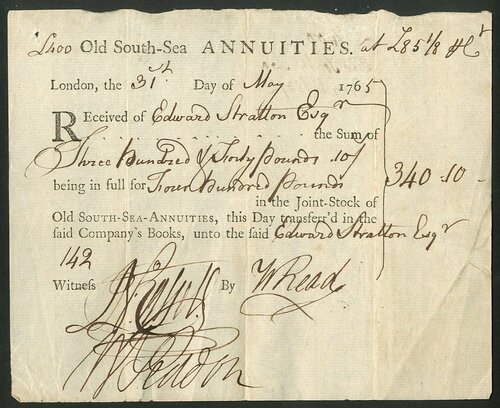 £400 Old South-Sea ANNUITIES. at £85 1/8
London, the 31st Day of May 1765
Received of Edward Stratton Esqr
the Sum of
Three Hundred & Forty Pounds 10/ 340.10
being in full for Four Hundred Pounds
in the Joint-Stock of
Old South-Sea-Annuities, this Day transferr'd in the
said Company's Books, unto the said Edward Stratton Esqr
142
Witness By WRead